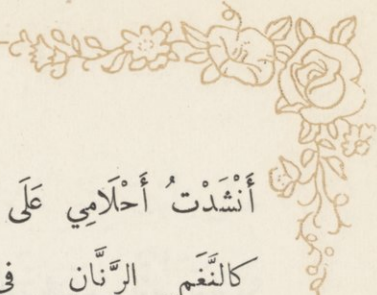 أَنْشَدْتُ أَحْلَامِي عَلَى
كالنَّغَمِ الرَّنَّان في